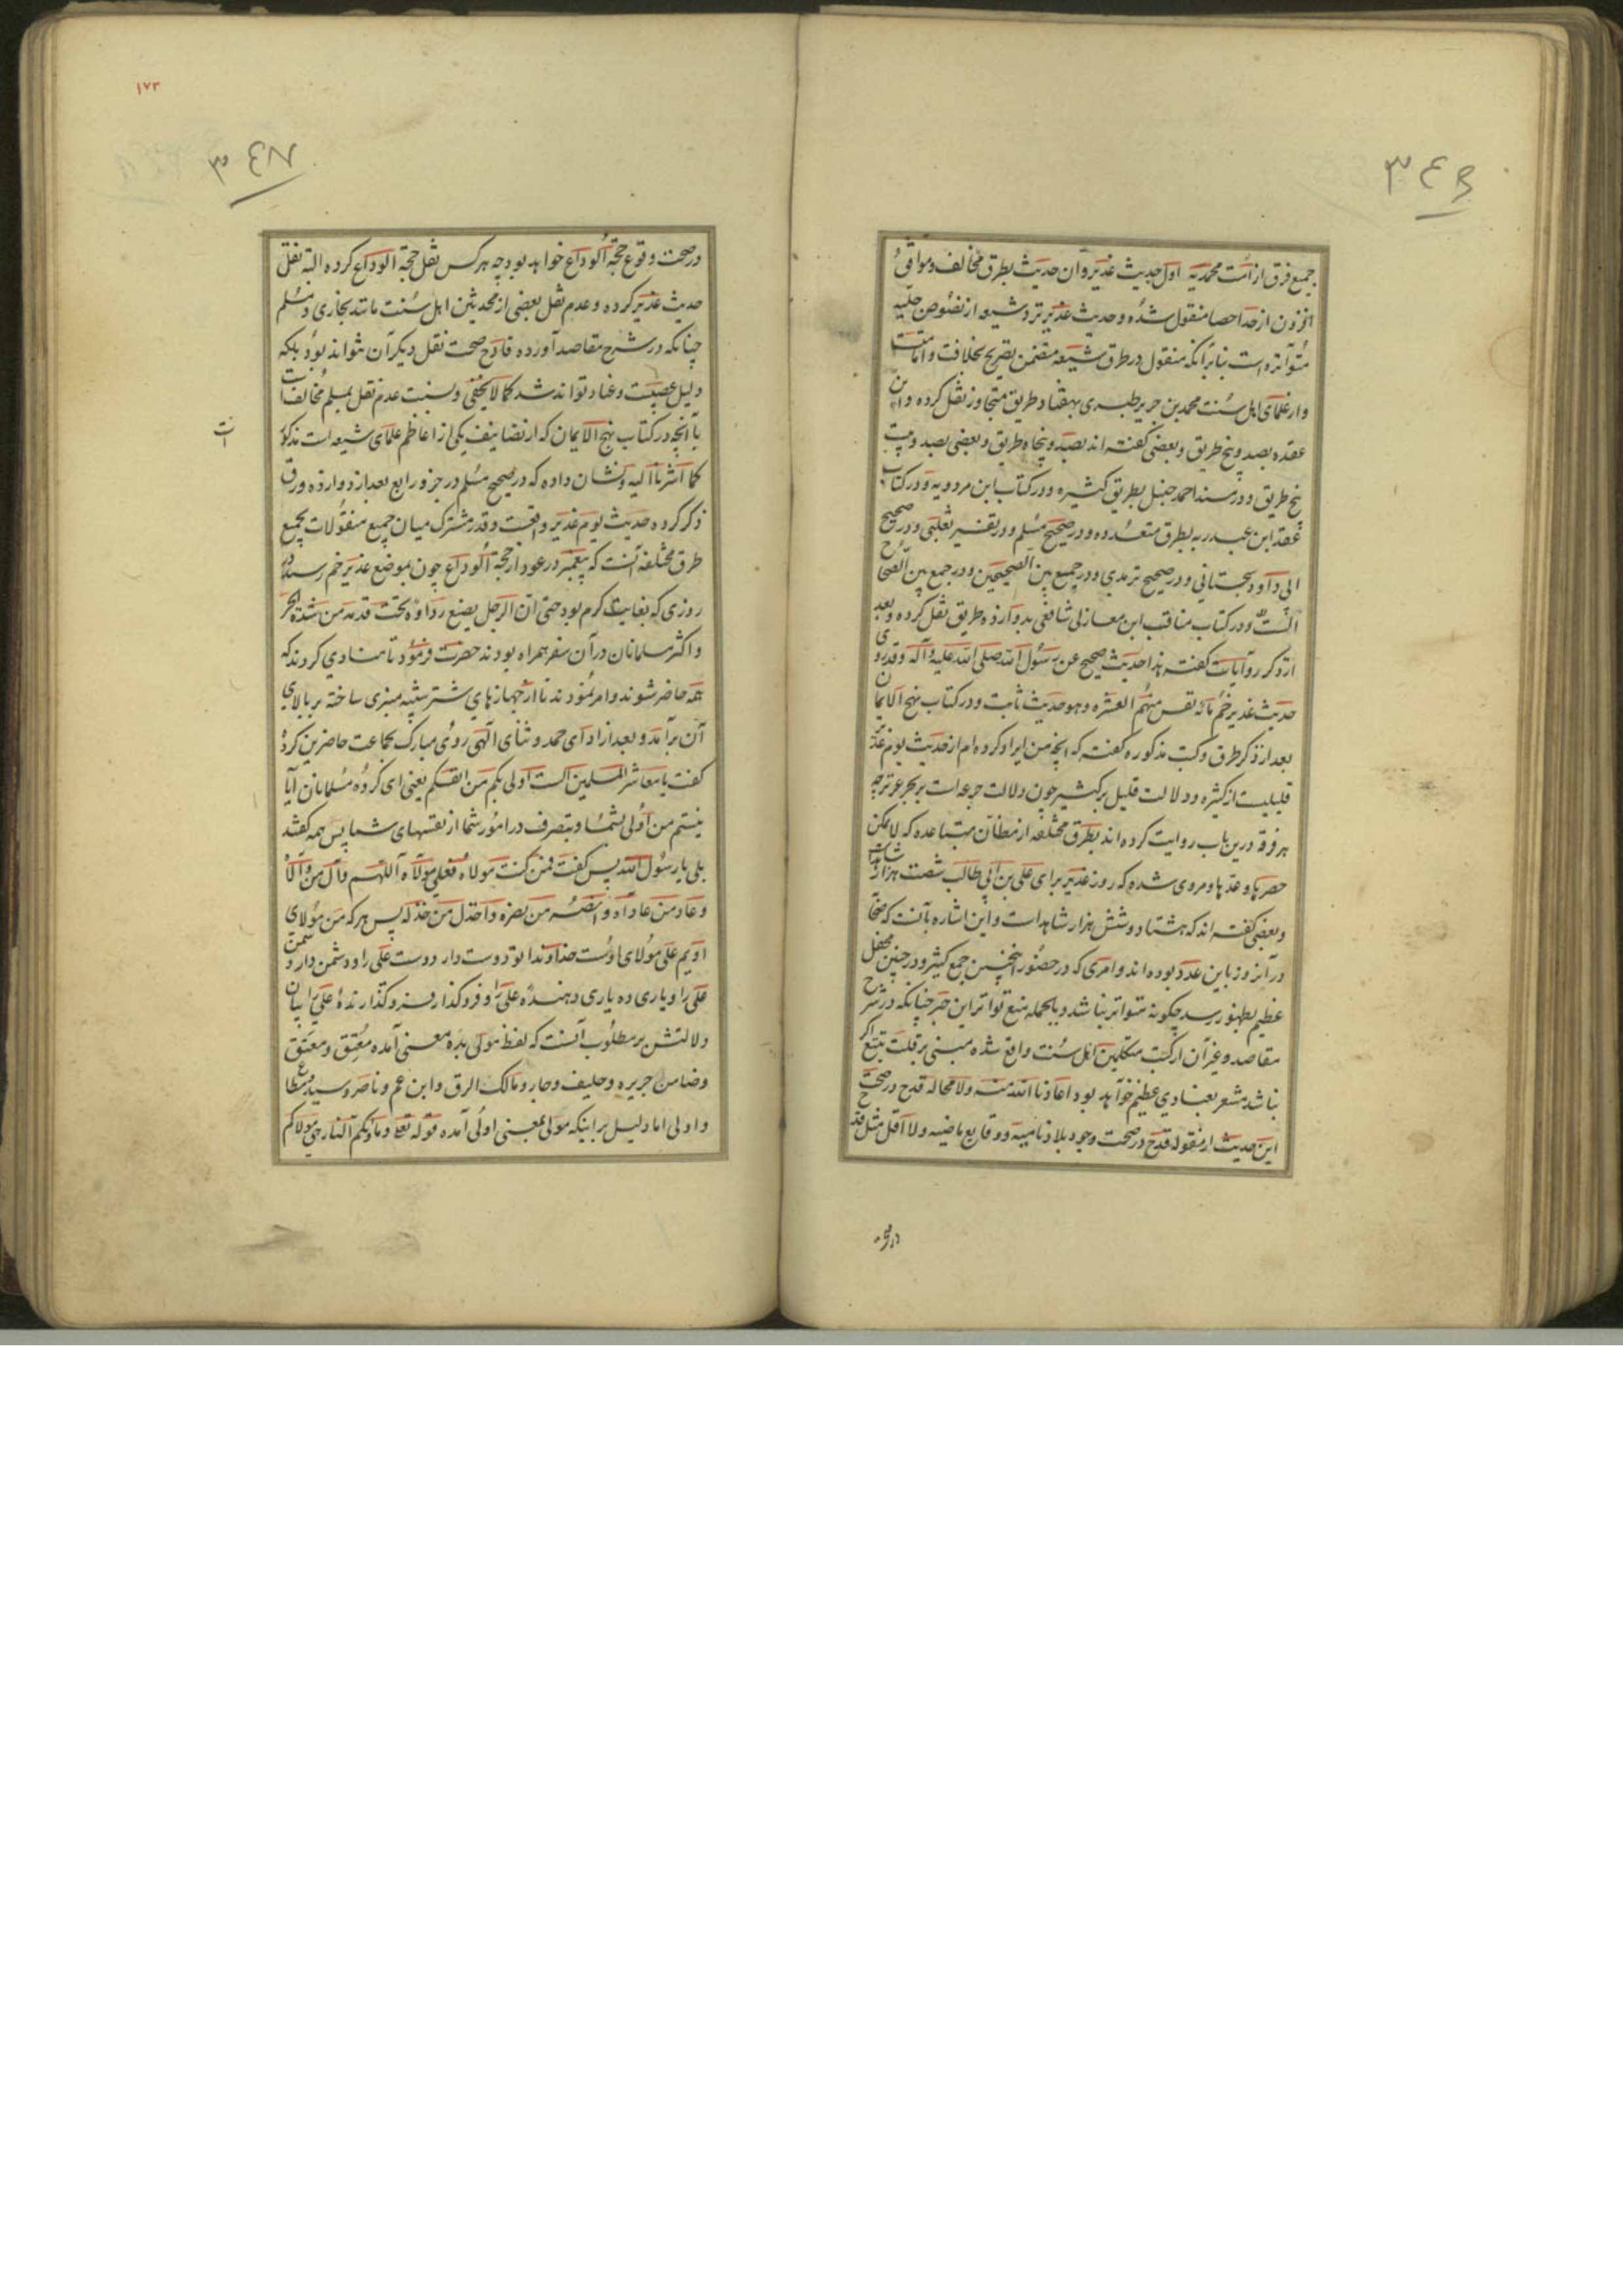 ٣٤٦
جمیع فرق از امت محمدیه اول حدیث غدیر وآن حدیث بطرق مخالف وموافق
افزون از حد احصا منقول شده و حدیث غدیر نزد شیعه از نصوص جلیه
متواتره است بنابر آنکه منقول در طرق شیعه متضمن تصریح بخلافت وامامت
واز علمای اهل سنت محمد بن جریر طبری بهفتاد طریق متجاوز نقل کرده وابن
عقده بصد وپنج طریق وبعضی گفته اند بصد وپنجاه طریق وبعضی بصد وبیست
پنج طریق ودر مسند احمد حنبل بطریق کثیره ودر کتاب ابن مردویه ودر کتاب
عقد ابن عبد ربه بطرق متعدده ودر صحیح مسلم ودر تفسیر ثعلبی ودر صحیح
ابی داود سجستانی ودر صحیح ترمدی ودر جمع بین الصحیحین ودر جمع بین الصحاح
الستة ودر کتاب مناقب ابن مغازلی شافعی بدوازده طریق نقل کرده وبعد
از ذکر روایات گفته هذا حدیث صحیح عن رسول الله صلی الله علیه وآله وقد روی
حدیث غدیر خم مائة نفس منهم العشره وهو حدیث ثابت ودر کتاب نهج الایمان
بعد از ذکر طرق وکتب مذکوره گفته که انچه من ایراد کرده ام از حدیث یوم غدیر
قلیلیست از کثیره ودلالت قلیل بر کثیر چون دلالت جرعه است بر بحر غزیر چه
هر فرقه درین باب روایت کرده اند بطرق مختلفه از مظان متباعده که لا یمکن
حصرها وعدها ومروی شده که روز غدیر برای علی بن ابی طالب شصت هزار شاهد است
وبعضی گفته اند که هشتاد وشش هزار شاهد است واین اشاره بآنست که صحابه
در آنروز باین عدد بوده اند وامری که در حضور اینچنین جمع کثیر ودر چنین محفل
عظیم بظهور رسد چگونه متواتر نباشد وبالجمله منع تواتر این خبر چنانکه در شرح
مقاصد وغیر آن از کتب متکلمین اهل سنت واقع شده مبنی بر قلت تتبع اگر
نباشد مشعر بعنادی عظیم خواهد بود اعاذنا الله منه ولا محاله قدح در صحت
این حدیث از مقوله قدح در صحت وجود بلاد نائیه ووقایع ماضیه ولا اقل مثل قدح
١٧٣
٣٤٧
در صحت وقوع حجة الوداع خواهد بود چه هر کس نقل حجة الوداع کرده البته نقل
حدیث غدیر کرده وعدم نقل بعضی از محدثین اهل سنت مانند بخاری ومسلم
چنانکه در شرح مقاصد آورده قادح صحت نقل دیگران نتواند بود بلکه
دلیل عصبیت وعناد تواند شد کما لا یخفی ونسبت عدم نقل بمسلم مخالف است
با آنچه در کتاب نهج الایمان که از تصانیف یکی از اعاظم علمای شیعه است مذکور
کما اشرنا الیه ونشان داده که در صحیح مسلم در جزو رابع بعد از دوازده ورق
ذکر کرده حدیث یوم غدیر واقعست وقدر مشترک میان جمیع منقولات بجمیع
طرق مختلفه آنست که پیغمبر در عود از حجة الوداع چون بموضع غدیر خم رسید در
روزی که بغایت گرم بود حتی ان الرجل یضع رداؤه تحت قدمه من شدة الحر
واکثر مسلمانان در آن سفر همراه بودند حضرت فرمود تا منادی کردند که
همه حاضر شوند وامر نمودند تا از جهازهای شتر شبه منبری ساخته بر بالای
آن برآمد وبعد از ادای حمد وثنای الهی روی مبارک بجماعت حاضرین کرده
گفت یا معاشر المسلمین الست اولی بکم من انفسکم یعنی ای گروه مسلمانان آیا
نیستم من اولی بشما وبتصرف در امور شما از نفسهای شما پس همه گفتند
بلی یا رسول الله پس گفت فمن کنت مولاه فعلی مولاه اللهم وال من والاه
وعاد من عاداه وانصر من نصره واخذل من خذله پس هر که من مولای
اویم علی مولای اوست خداوندا تو دوست دار دوست علی را ودشمن دار دشمن
علی را ویاری ده یاری دهنده علی را وفرو گذار فرو گذارنده علی را بیان
دلالتش بر مطلوب آنست که لفظ مولی بده معنی آمده معتِق ومعتَق
وضامن جریره وحلیف وجار ومالک الرق وابن عم وناصر وسید مطاع
واولی اما دلیل بر اینکه مولی بمعنی اولی آمده قوله تعا وماویکم النار هی مولاکم